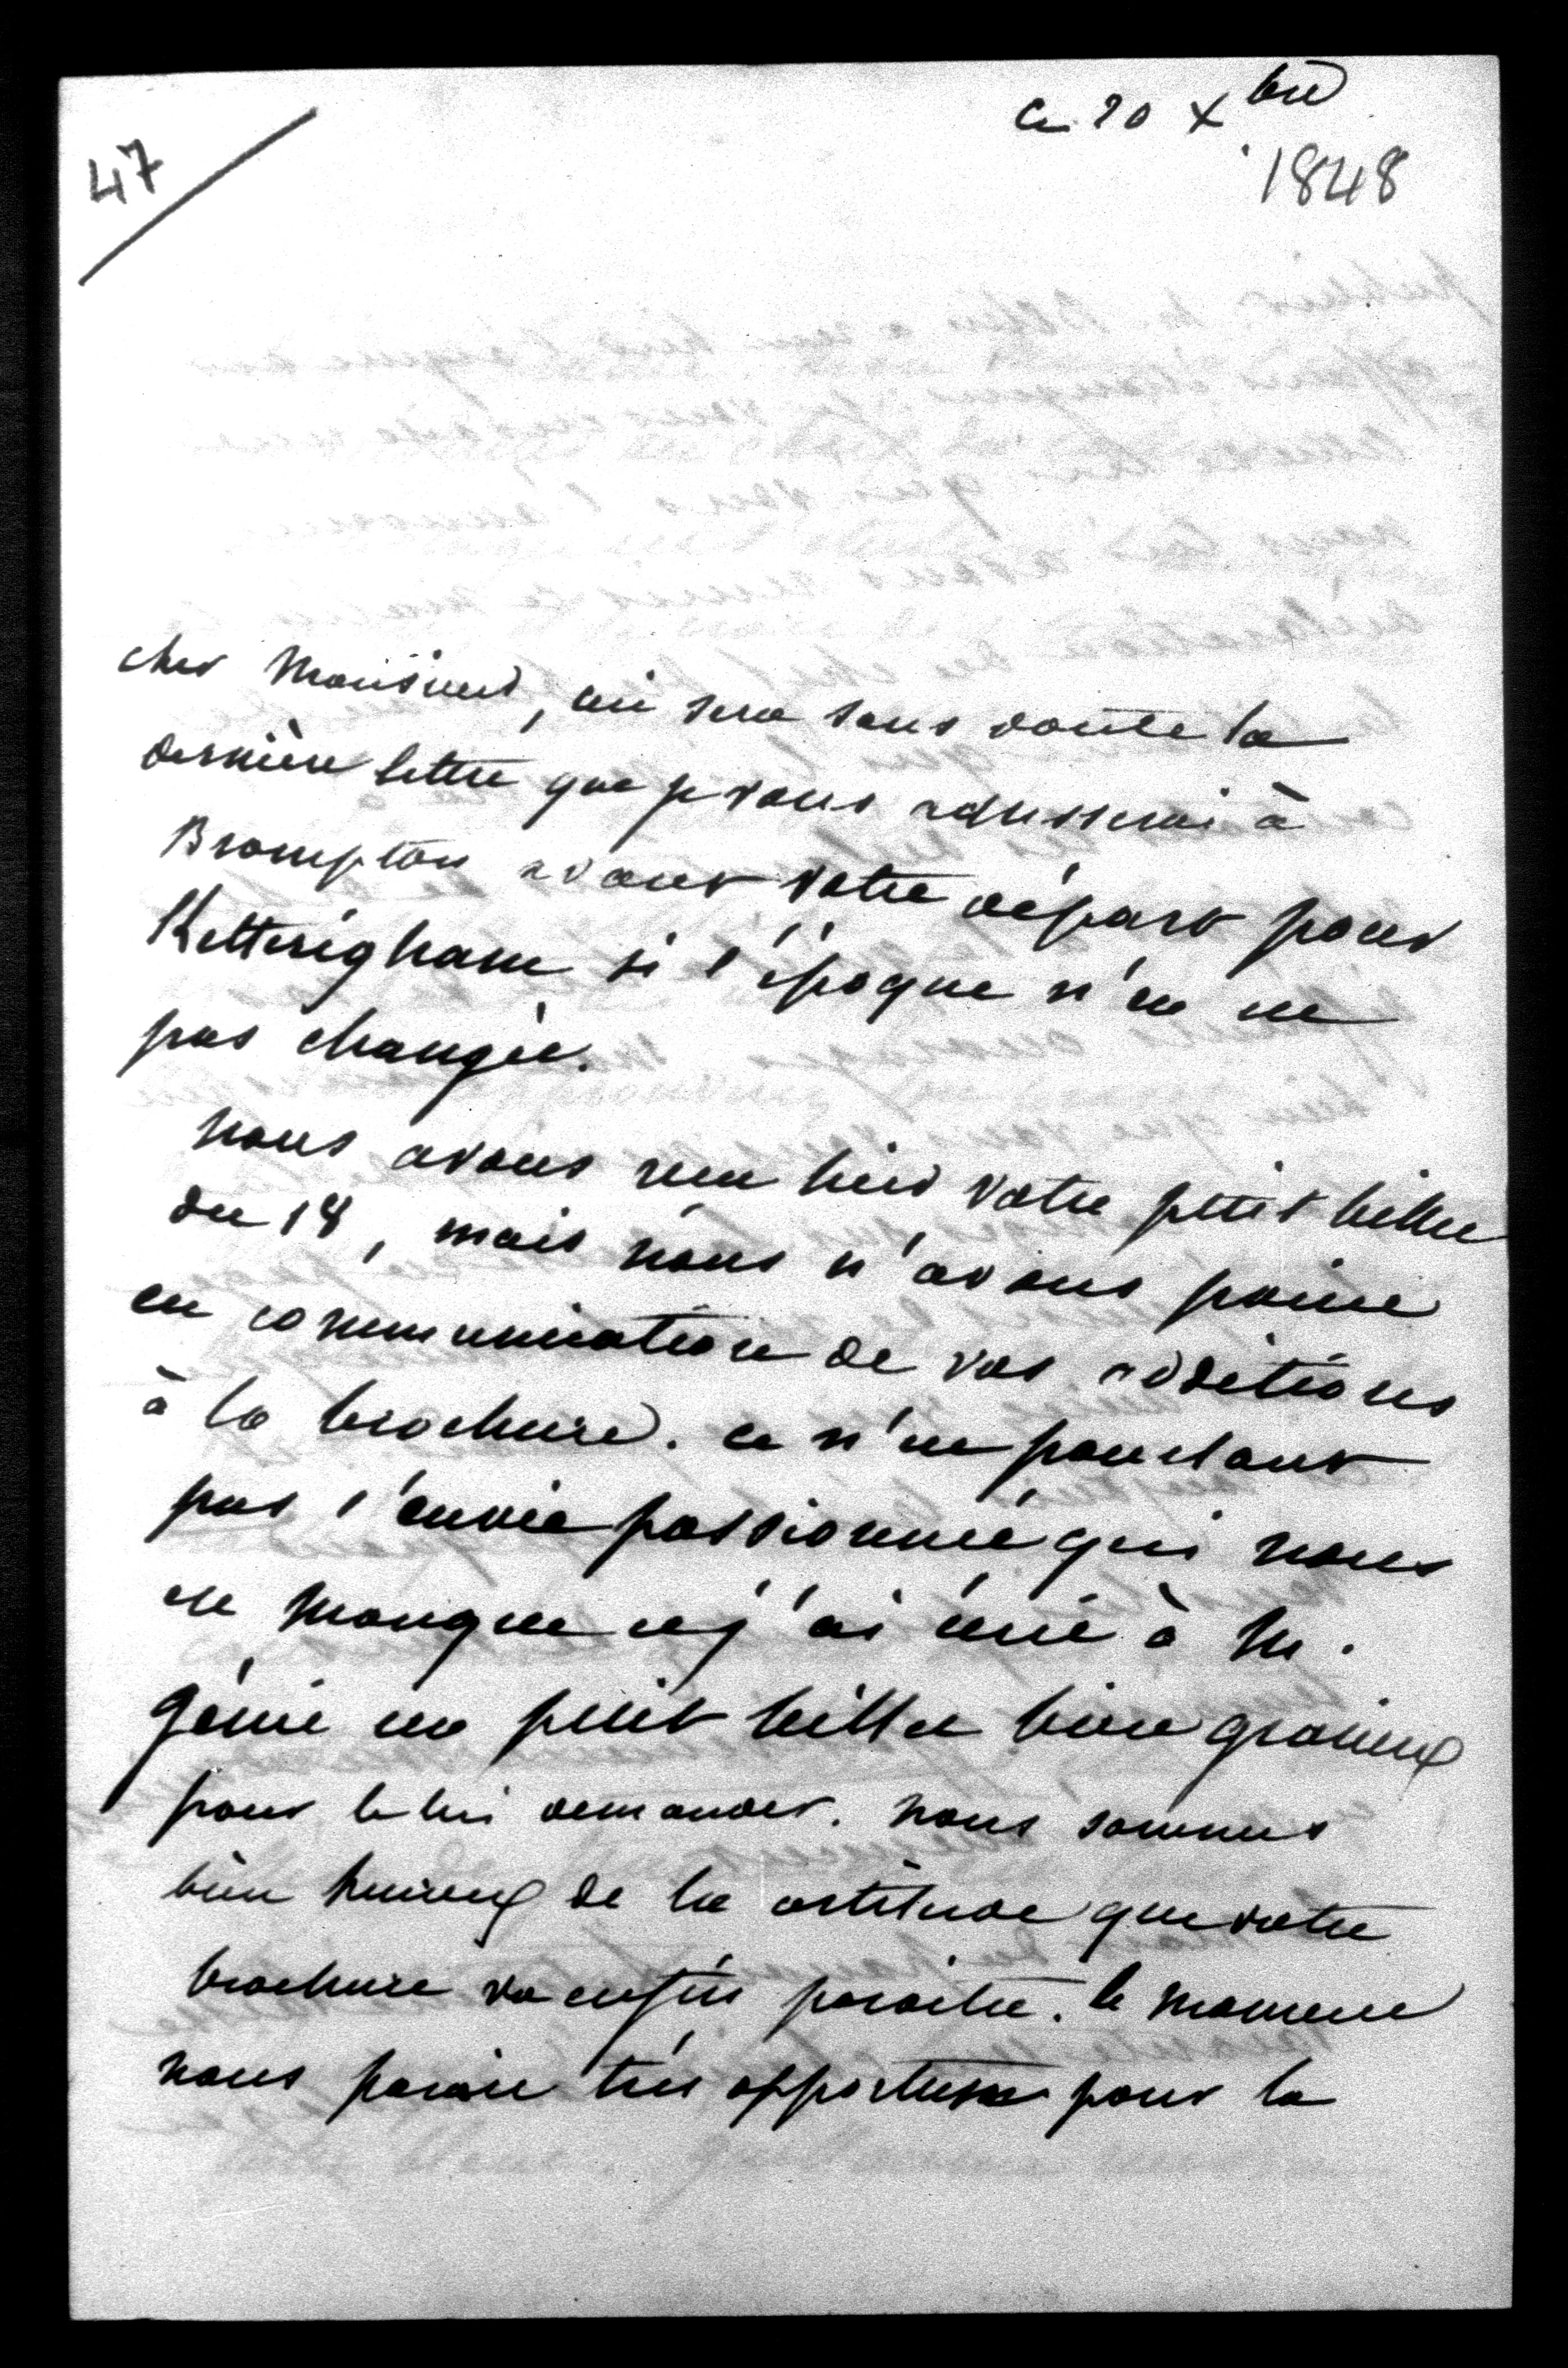 47
ce 20 Xbre
1848
cher Monsieur, ceci sera sans doute la
dernière lettre que je vous adresserai à
Brompton avant votre départ pour
Ketteringham si l'époque n'en est
pas changée.
nous avons reçu hier votre petit billet
du 18, mais nous n'avons point
eu communication de vos additions
à la brochure. ce n'est pourtant
pas l'envie passionnée qui nous
en manque et j'ai écrit à M.
génie un petit billet bien gracieux
pour le lui demander. nous sommes
bien heureux de la certitude que votre
brochure va enfin paraitre. le moment
nous parait très opportun pour la